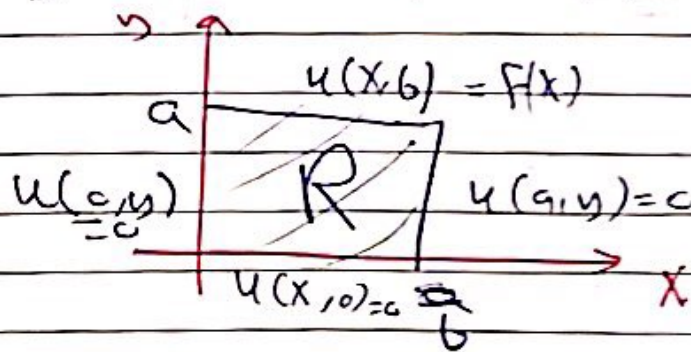 y
u(x,b) = f(x)
a
R
u(0,y)
=0
u(a,y)=0
u(x,0)=0
b
x